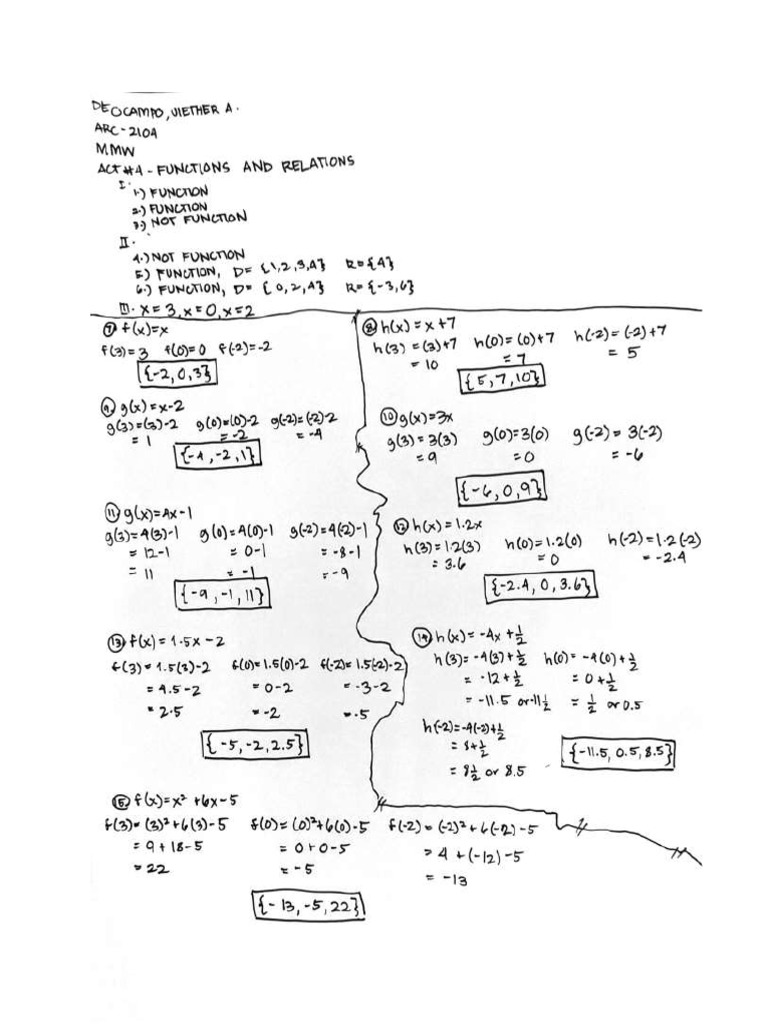 DE OCAMPO, VIETHER A.
ARC-210A
MMW
ACT #4 - FUNCTIONS AND RELATIONS
I.
1.) FUNCTION
2.) FUNCTION
3.) NOT FUNCTION
II.
4.) NOT FUNCTION
5.) FUNCTION, D= {1,2,3,4} R= {4}
6.) FUNCTION, D= {0,2,4} R= {-3,6}
III. x=3, x=0, x=2
⑦ f(x)=x
f(3)=3 f(0)=0 f(-2)=-2
{-2,0,3}
⑧ h(x)=x+7
h(3)=(3)+7 h(0)=(0)+7 h(-2)=(-2)+7
= 10 = 7 = 5
{5,7,10}
⑨ g(x)=x-2
g(3)=(3)-2 g(0)=(0)-2 g(-2)=(-2)-2
= 1 = -2 = -4
{-4,-2,1}
⑩ g(x)=3x
g(3)=3(3) g(0)=3(0) g(-2)=3(-2)
= 9 = 0 = -6
{-6,0,9}
⑪ g(x)=4x-1
g(3)=4(3)-1 g(0)=4(0)-1 g(-2)=4(-2)-1
= 12-1 = 0-1 = -8-1
= 11 = -1 = -9
{-9,-1,11}
⑫ h(x)=1.2x
h(3)=1.2(3) h(0)=1.2(0) h(-2)=1.2(-2)
= 3.6 = 0 = -2.4
{-2.4, 0, 3.6}
⑬ f(x)=1.5x-2
f(3)=1.5(3)-2 f(0)=1.5(0)-2 f(-2)=1.5(-2)-2
= 4.5-2 = 0-2 = -3-2
= 2.5 = -2 = -5
{-5,-2,2.5}
⑭ h(x)=-4x+½
h(3)=-4(3)+½ h(0)=-4(0)+½
= -12+½ = 0+½
= -11.5 or -11½ = ½ or 0.5
h(-2)=-4(-2)+½
= 8+½
= 8½ or 8.5
{-11.5, 0.5, 8.5}
⑮ f(x)=x²+6x-5
f(3)=(3)²+6(3)-5 f(0)=(0)²+6(0)-5 f(-2)=(-2)²+6(-2)-5
= 9+18-5 = 0+0-5 = 4+(-12)-5
= 22 = -5 = -13
{-13,-5,22}